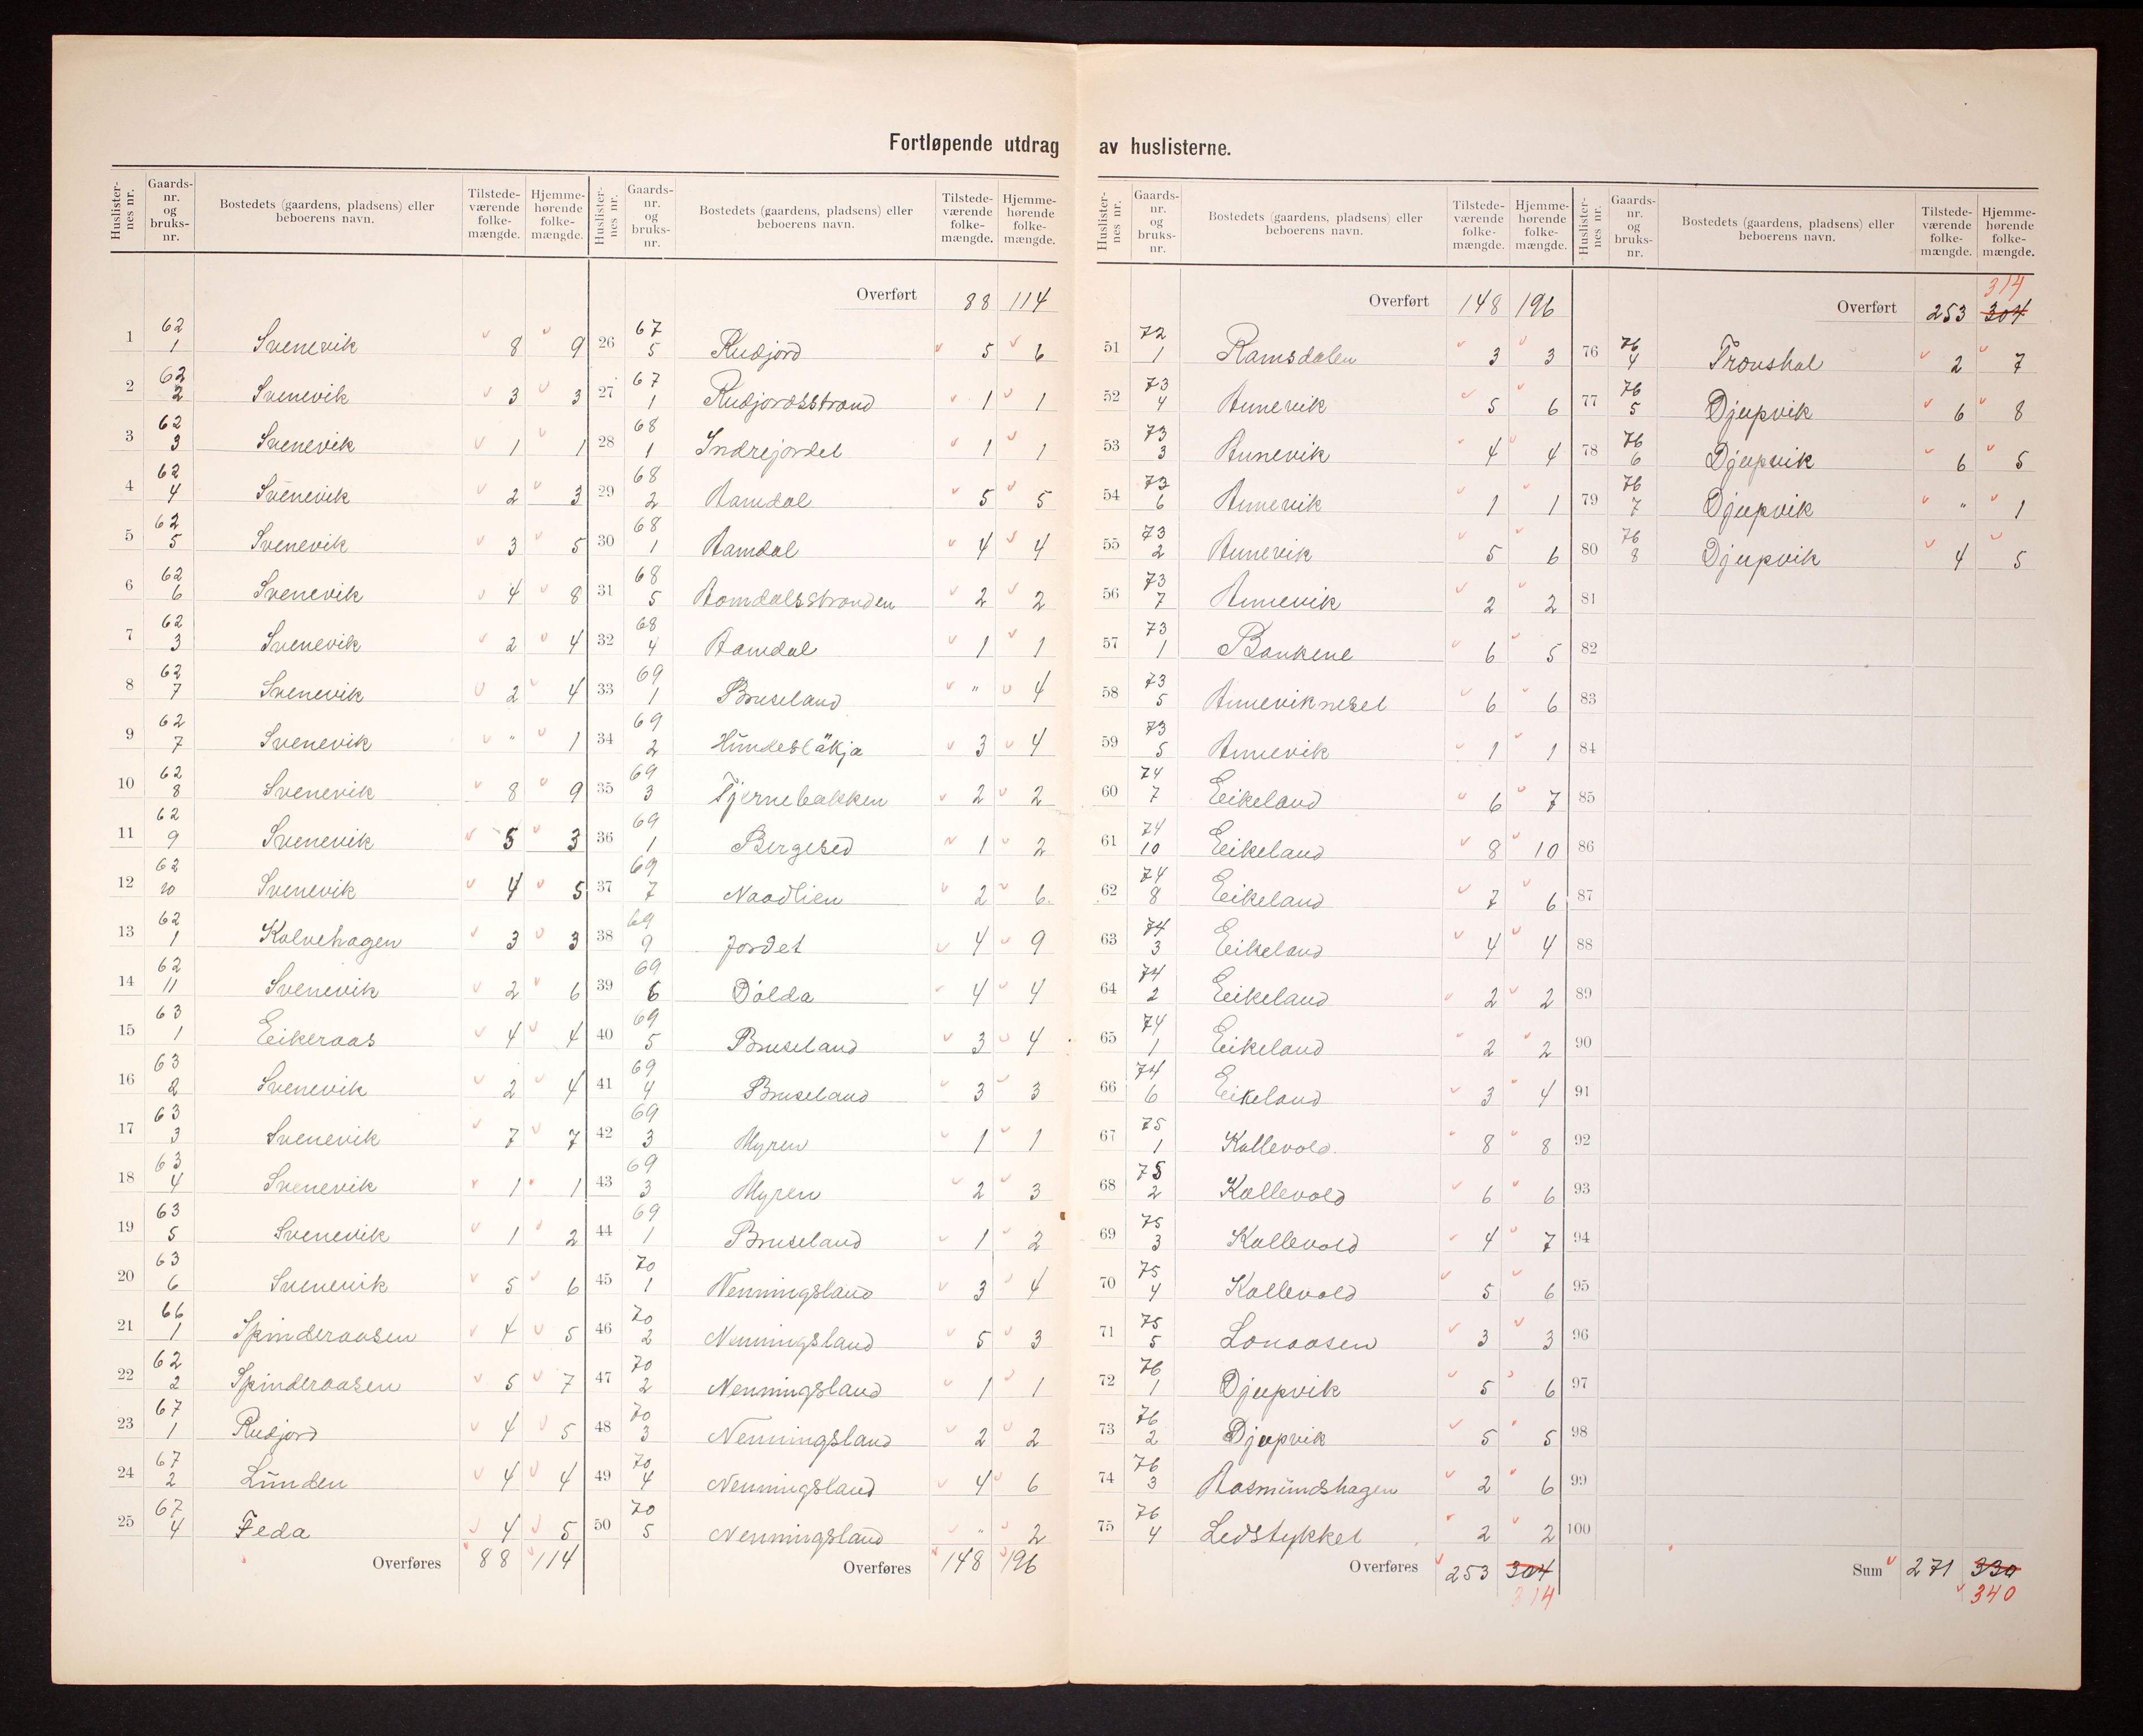 Fortløpende utdrag av huslisterne.
Huslisternes nr. | Gaards-nr. og bruks-nr. | Bostedets (gaardens, pladsens) eller beboerens navn. | Tilstedeværende folkemængde. | Hjemmehørende folkemængde.
1 62/1 Svenevik 8 9
2 62/2 Svenevik 3 3
3 62/3 Svenevik 1 1
4 62/4 Svenevik 2 3
5 62/5 Svenevik 3 5
6 62/6 Svenevik 4 8
7 62/3 Svenevik 2 4
8 62/7 Svenevik 2 4
9 62/7 Svenevik " 1
10 62/8 Svenevik 8 9
11 62/9 Svenevik 5 3
12 62/10 Svenevik 4 5
13 62/1 Kalvehagen 3 3
14 62/11 Svenevik 2 6
15 63/1 Eikeraas 4 4
16 63/2 Svenevik 2 4
17 63/3 Svenevik 7 7
18 63/4 Svenevik 1 1
19 63/5 Svenevik 1 2
20 63/6 Svenevik 5 6
21 66/1 Spinderaasen 4 5
22 62/2 Spinderaasen 5 7
23 67/1 Rudjord 4 5
24 67/2 Lunden 4 4
25 67/4 Feda 4 5
Overføres 88 114
Huslisternes nr. | Gaards-nr. og bruks-nr. | Bostedets (gaardens, pladsens) eller beboerens navn. | Tilstedeværende folkemængde. | Hjemmehørende folkemængde.
Overført 88 114
26 67/5 Rudjord 5 6
27 67/1 Rudjordsstrand 1 1
28 68/1 Indrejordet 1 1
29 68/2 Aamdal 5 5
30 68/1 Aamdal 4 4
31 68/5 Aomdalsstranden 2 2
32 68/4 Aamdal 1 1
33 69/1 Bruseland " 4
34 69/2 3 4
35 69/3 Tjernebakken 2 2
36 69/1 Bergesed 1 2
37 69/7 Naadlien 2 6
38 69/9 Jordet 4 9
39 69/6 Dølda 4 4
40 69/5 Bruseland 3 4
41 69/4 Bruseland 3 3
42 69/3 Myren 1 1
43 69/3 Myren 2 3
44 69/1 Bruseland 1 2
45 70/1 Nenningsland 3 4
46 70/2 Nenningsland 5 3
47 70/2 Nenningsland 1 1
48 70/3 Nenningsland 2 2
49 70/4 Nenningsland 4 6
50 70/5 Nenningsland " 2
Overføres 148 196
Huslisternes nr. | Gaards-nr. og bruks-nr. | Bostedets (gaardens, pladsens) eller beboerens navn. | Tilstedeværende folkemængde. | Hjemmehørende folkemængde.
Overført 148 196
51 72/1 Ramsdalen 3 3
52 73/4 Annevik 5 6
53 73/3 Annevik 4 4
54 73/6 Annevik 1 1
55 73/2 Annevik 5 6
56 73/7 Annevik 2 2
57 73/1 Bankene 6 5
58 73/5 Annevikneset 6 6
59 73/5 Annevik 1 1
60 74/7 Eikeland 6 7
61 74/10 Eikeland 8 10
62 74/8 Eikeland 7 6
63 74/3 Eikeland 4 4
64 74/2 Eikeland 2 2
65 74/1 Eikeland 2 2
66 74/6 Eikeland 3 4
67 75/1 Kallevold 8 8
68 75/2 Kallevold 6 6
69 75/3 Kallevold 4 7
70 75/4 Kallevold 5 6
71 75/5 Lonaasen 3 3
72 76/1 Djupvik 5 6
73 76/2 Djupvik 5 5
74 76/3 Aasmundshagen 2 6
75 76/4 Ledstykket 2 2
Overføres 253 304
314
Huslisternes nr. | Gaards-nr. og bruks-nr. | Bostedets (gaardens, pladsens) eller beboerens navn. | Tilstedeværende folkemængde. | Hjemmehørende folkemængde.
314
Overført 253 304
76 76/4 Tronshol 2 7
77 76/5 Djupvik 6 8
78 76/6 Djupvik 6 5
79 76/7 Djupvik " 1
80 76/8 Djupvik 4 5
81
82
83
84
85
86
87
88
89
90
91
92
93
94
95
96
97
98
99
100
Sum 271 330
340